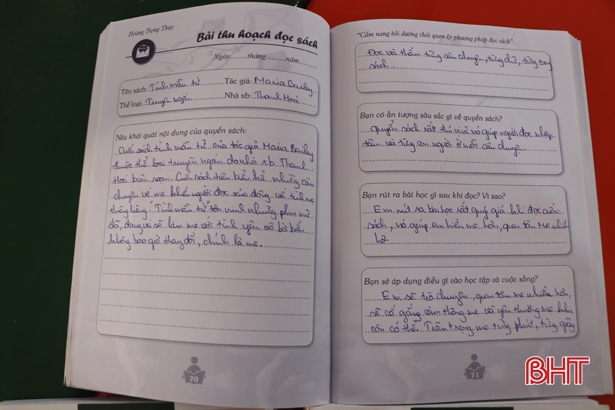 Hoàng Trọng Thủy
Bài thu hoạch đọc sách
Ngày......tháng......năm........
Tên sách: Tình mẫu tử Tác giả: Maria Bailey
Thể loại: Truyện ngắn Nhà xb: Thanh Hoá
Nêu khái quát nội dung của quyển sách:
Cuốn sách tình mẫu tử của tác giả Maria Bailey
thuộc thể loại truyện ngắn do nhà xb Thanh
Hoá biên soạn. Cuốn sách tiêu biểu kể những câu
chuyện về mẹ khiến người đọc xúc động về tình mẹ
thiêng liêng. "Tình mẫu tử" tôn vinh những phụ nữ
đã, đang và sẽ làm mẹ với tình yêu vô bờ bến
không bao giờ thay đổi, chính là mẹ.
70
"Cẩm nang bồi dưỡng thói quen & phương pháp đọc sách"
Đọc và thấm từng câu chuyện, từng chữ, từng trang
sách...
Bạn có ấn tượng sâu sắc gì về quyển sách?
Quyển sách rất thú vị và giúp người đọc nhập
tâm và từng con người ở mỗi câu chuyện.
Bạn rút ra bài học gì sau khi đọc? Vì sao?
Em rút ra bài học rất quý giá khi đọc cuốn
sách, nó giúp em hiểu mẹ hơn, quan tâm Mẹ nhiều
hơn
Bạn sẽ áp dụng điều gì vào học tập và cuộc sống?
Em sẽ trò chuyện, quan tâm mẹ nhiều hơn,
sẽ cố gắng cảm thông mẹ và yêu thương mẹ khi
còn có thể. Trân trọng mẹ từng phút, từng giây
71
BHT